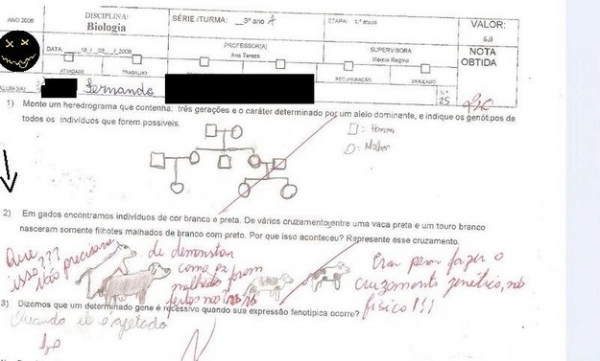 ANO 2008
DISCIPLINA:
Biologia
SÉRIE /TURMA: 3º ano A
ETAPA:
VALOR:
DATA: 2008
PROFESSOR(A)
Ana Tereza
SUPERVISORA
Regina
NOTA OBTIDA
ATIVIDADE
TRABALHO
RECUPERAÇÃO
Nº
25
Fernande
1) Monte um heredrograma que contenha: três gerações e o caráter determinado por um alelo dominante, e indique os genótipos de
todos os indivíduos que forem possíveis.
□: Homem
O: Mulher
2) Em gados encontramos indivíduos de cor branca e preta. De vários cruzamentos entre uma vaca preta e um touro branco
nasceram somente filhotes malhados de branco com preto. Por que isso aconteceu? Represente esse cruzamento.
Que isso???
Não precisava de demonstrar como os malhados foram feitos
Era para fazer o cruzamento genético, não físico!!!
3) Dizemos que um determinado gene é recessivo quando sua expressão fenotípica ocorre?
Quando ele é